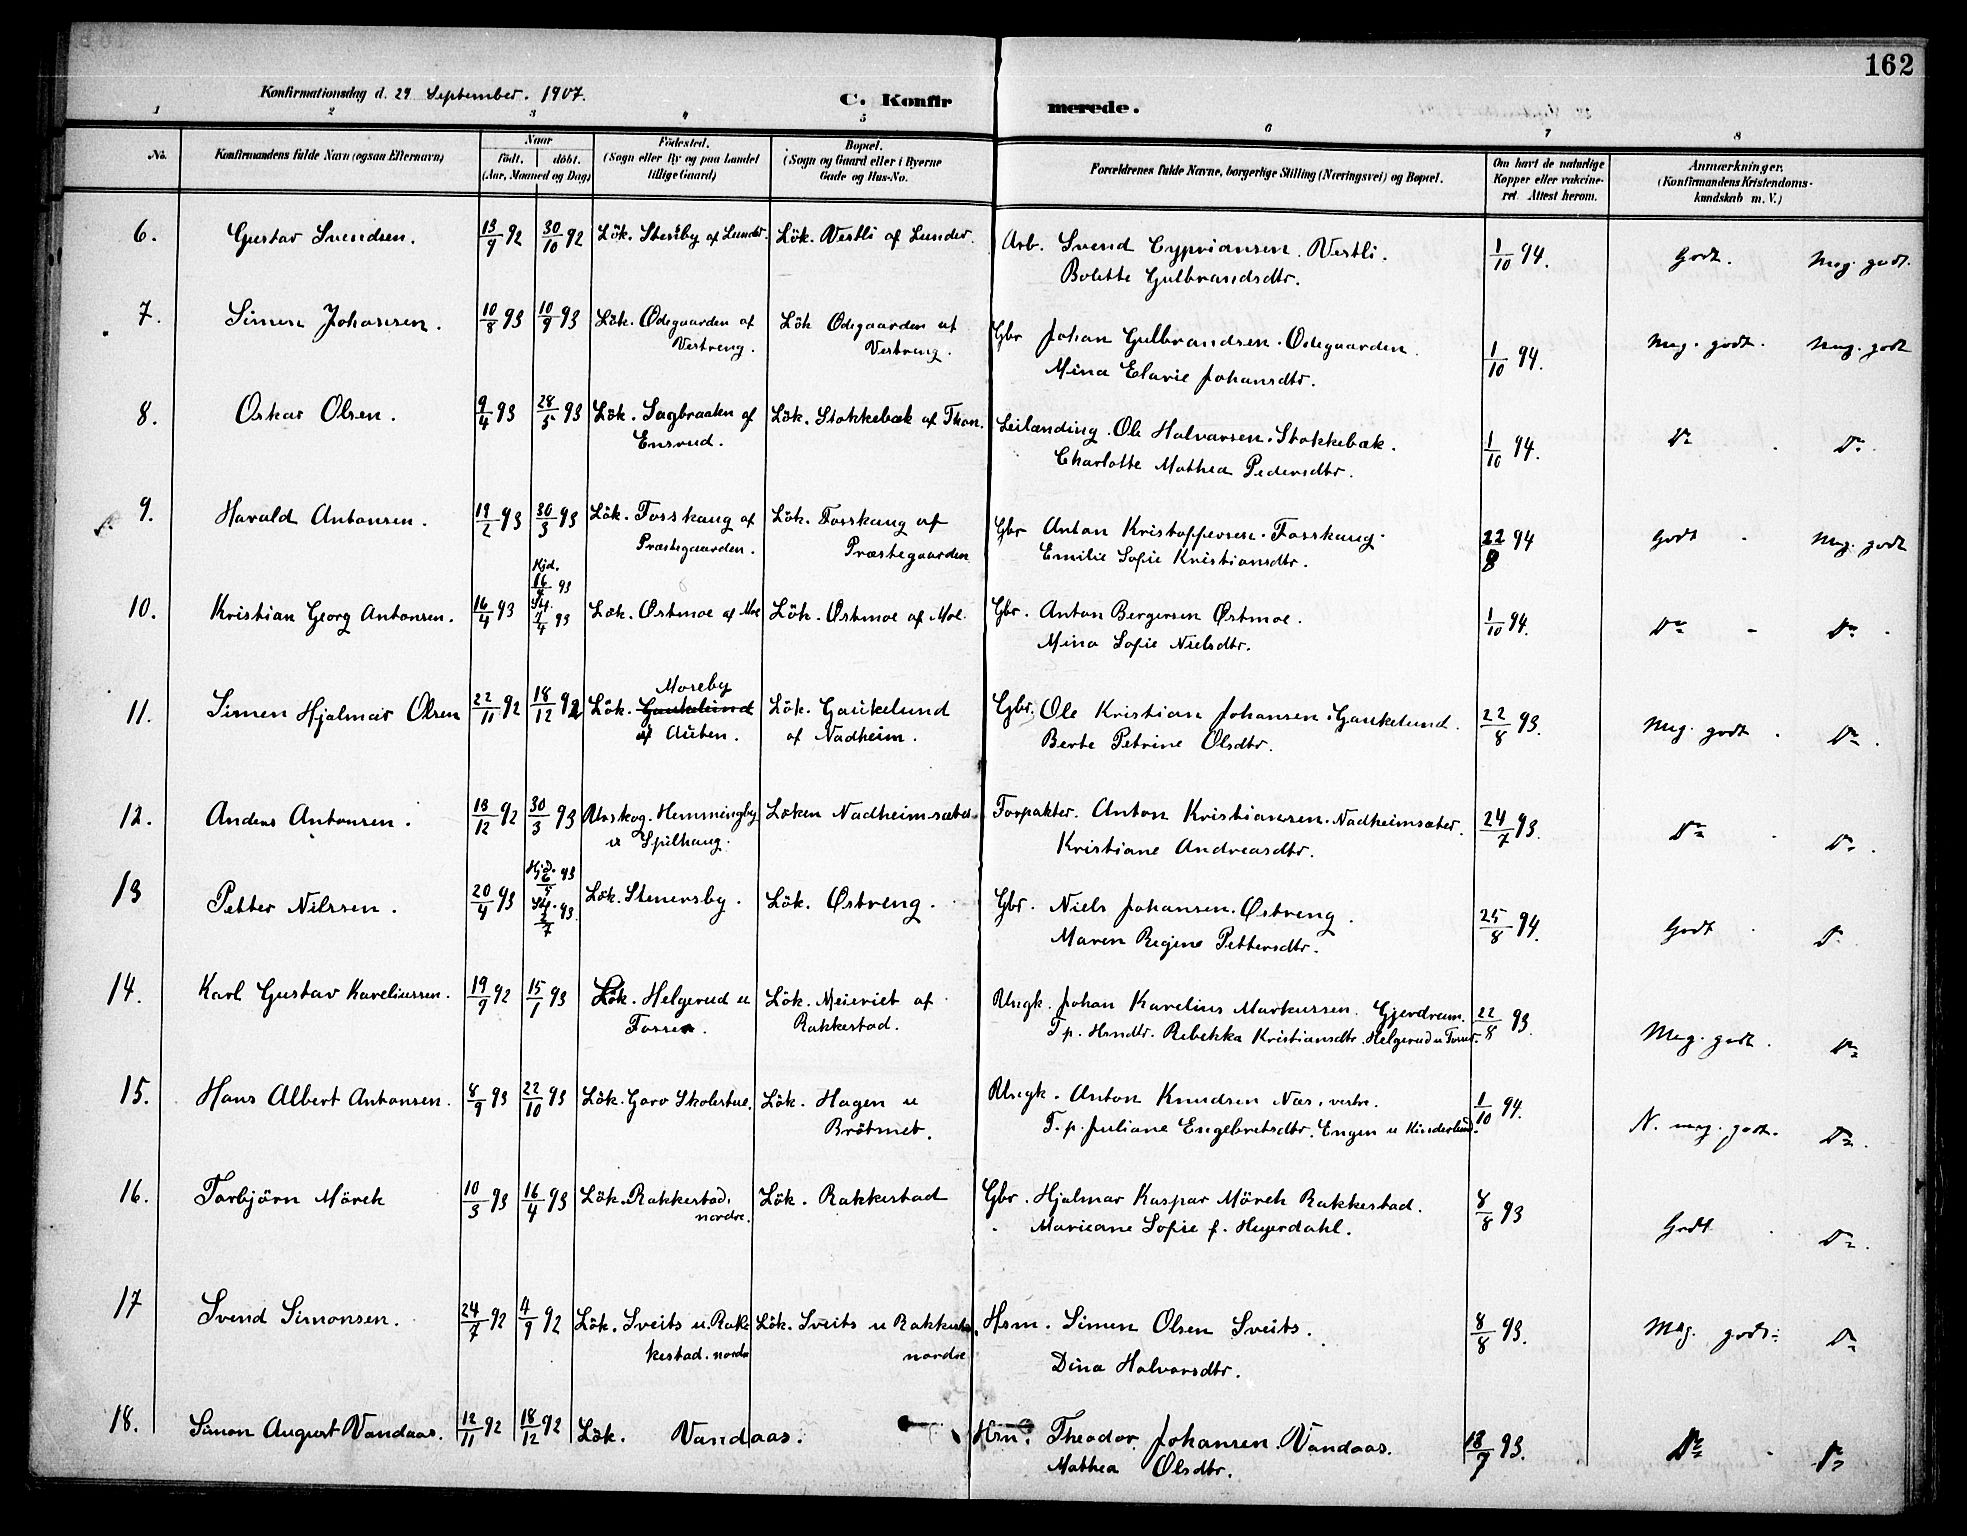 162
Konfirmationsdag d. 29 September. 1907.
C. Konfirmerede.
1 2 3 4 5 6 7 8
No. Konfirmandens fulde Navn (ogsaa Efternavn) Naar født. døbt. (Aar, Maaned og Dag) Fødested. (Sogn eller By og paa Landet tillige Gaard) Bopæl. (Sogn og Gaard eller i Byerne Gade og Hus-No. Forældrenes fulde Navne, borgerlige Stilling (Næringsvei) og Bopæl. Om havt de naturlige Kopper eller vakcineret. Attest herom. Anmærkninger. (Konfirmandens Kristendomskundskab m. V.)
6. Gustav Svendsen. 13/9 92 30/10 92 Lök. Stensby af Lunder. Lök. Vestli af Lunder. Arb. Svend Cypriansen. Vestli. 1/10 94. Godt. Meg. godt.
Bolette Gulbrandsdtr.
7. Simen Johansen. 10/8 93 10/9 93 Lök. Ødegaarden af Lök Ødegaarden af Gbr Johan Gulbrandsen. Ødegaarden. 1/10 94. Meg. godt. Meg. godt
Vestreng. Vestreng. Mina Elavie Johansdtr.
8. Oskar Olsen. 9/4 93 28/5 93 Lök. Sagbraaten af Lök. Stokkebæk af Thon. Leilænding. Ole Halvorsen. Stokkebæk. 1/10 94. Do. Do.
Ensrud. Charlotte Mathea Pedersdtr.
9. Harald Antonsen. 19/2 93 30/3 93 Lök. Fosskaug af Lök. Fosskaug af Gbr Anton Kristoffersen. Fosskaug. 22/8 94 Godt Meg. godt
Præstegaarden. Præstegaarden Emilie Sofie Kristiansdtr.
10. Kristian Georg Antonsen. 16/4 93 Kjd. 16/4 93 Lök. Østmoe af Moe Lök. Østmoe af Moe. Gbr. Anton Bergersen Østmoe. 1/10 94. Do. - Do.
Mina Sofie Nielsdtr.
11. Simen Hjalmar Olsen 22/11 92 18/12 92 Lök. Moseby Gaukelund Lök. Gaukelund Gbr. Ole Kristian Johansen. Gaukelund. 22/8 93. Meg. godt. Do.
af Auten. af Nadheim. Berte Petrine Olsdtr.
12. Anders Antonsen. 13/12 92 30/3 93 Urskog. Hemmingby Löken Nadheimsæter Forpakter. Anton Kristiansen. Nadheimsæter. 24/7 93. Do. Do.
u Spilhaug. Kristiane Andreasdtr.
13 Petter Nilssen. 20/4 93 Lök. Stenersby. Lök. Østreng. Gbr. Niels Johansen. Østreng. 25/8 94. Godt Do.
Maren Regine Pettersdtr.
14. Karl Gustav Kareliussen. 19/9 92 15/1 93 Lök. Helgerud u Lök. Meieriet af Ungk. Johan Karelius Markussen. Gjerdrum. 22/8 93. Meg. godt. Do.
Fosser. Rakkestad. T. p. Hsmdtr. Rebekka Kristiansdtr. Helgerud u Fosser.
15. Hans Albert Antonsen. 8/9 93 22/10 93 Lök. Garv Skolestue. Lök. Hagen u Ungk. Anton Knudsen Næs, vestre. 1/10 94. N. meg. godt. Do.
Brötmet. T. p. Juliane Engebretsdtr. Engen u Kinderlund.
16. Torbjörn Mörch 10/3 93 16/4 93 Lök. Rakkestad, Lök. Rakkestad Gbr. Hjalmar Kaspar Mörch Rakkestad. 8/8 93 Godt. Do.
nordre. Marieane Sofie f. Heyerdahl.
17 Svend Simonsen. 24/7 92 4/9 92 Lök. Sveits u. Rak- Lök. Sveits u Rakkestad, Hsm. Simen Olsen Sveits. 8/8 93. Meg. godt. Do.
kestad. nordre nordre Dina Halvorsdtr.
18. Simon August Vandaas. 12/11 92 18/12 92 Lök. Vandaas. Hsm. Theodor Johansen Vandaas. 18/7 93. Do. - Do.
Mathea Olsdtr.